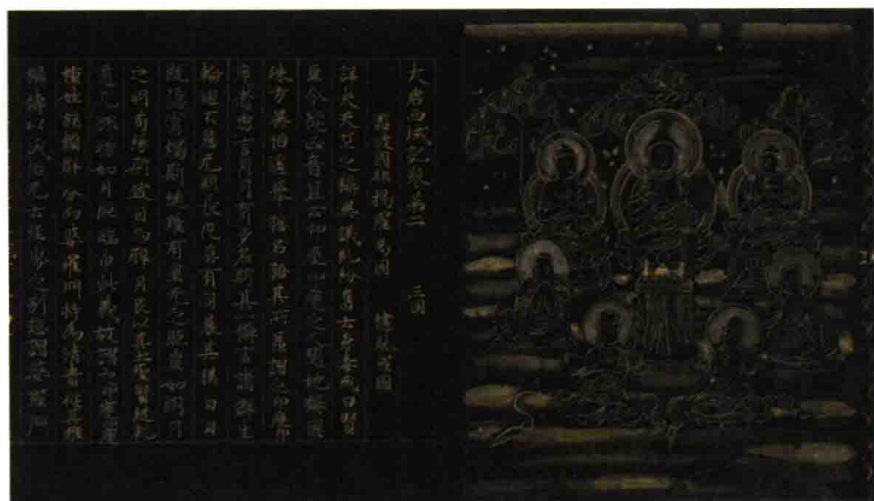 大唐西域記卷第二 三國
濫波國 那揭羅曷國 健馱邏國
詳夫天竺之稱異議糺紛舊云身毒或曰賢
豆今從正音宜云印度印度之人隨地稱國
殊方異俗遙舉總名語其所美謂之印度印
度者唐言月月有多名斯其一稱言諸群生
輪迴不息無明長夜莫有司晨其猶白日
既隱宵燭斯繼雖有星光之照豈如朗月
之明苟緣斯致因而譬月良以其土聖賢繼軌
導凡御物如月照臨由此義故謂之印度
種姓族類群分而婆羅門特為清貴從其雅
稱傳以成俗無云經界之別總謂婆羅門